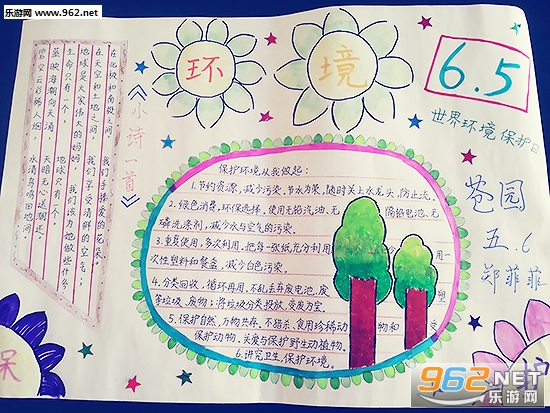 乐游网 www.962.net
环 境
6.5
世界环境保护日
苍园
五.6
郑菲菲
《小诗一首》
在北极和南极之间,
我们手捧爱的花朵.
在天空和土地之间,
我们享受清鲜的空气;
地球是大家伟大的妈妈,
生命只有一个,
地球只有一个.
水清鸟鸣田地间.
保护环境从我做起:
1.节约资源,减少污染,节水为荣,随时关上水龙头,防止流.
2.绿色消费,环保选择,使用无铅汽油、无 隔铅电池、无
磷洗涤剂,减少水与空气的污染.
3.重复使用,多次利用,把每一张纸充分利用 用一
次性塑料和餐盒,减少白色污染. 塑
4.分类回收,循环再用,不乱丢弃废电池,废
弃垃圾,废物;将垃圾分类投放,变废为宝.
5.保护自然,万物共存,不猎杀、食用珍稀动 物和 受
保护动物,关爱与保护野生动植物.
6.讲究卫生,保护环境.
保
护
962.NET
乐游网